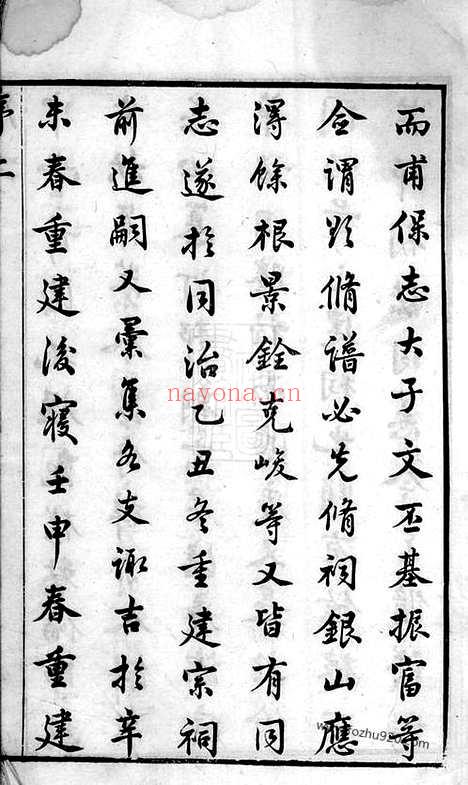 而甫保志大子文丕基振富等
佥謂欵脩譜必先脩祠銀山應
淂餘根景銓克峻等又皆有同
志遂於同治乙丑冬重建宗祠
前進嗣又彙集各支諏吉於辛
未春重建後寢壬申春重建
序二
nayona.cn